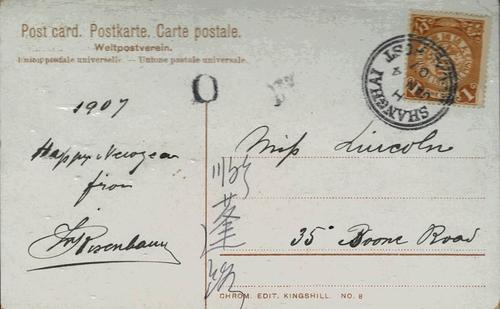 Post card. Postkarte. Carte postale.
Weltpostverein.
Union postale universelle. — Unione postale universale.
SHANGHAI
JAN
POST
1907
Happy New Year
from
Rosenbaum
O
Miss Lincoln
35 Boone Road
蓬
路
CHROM. EDIT. KINGSHILL. NO. 8